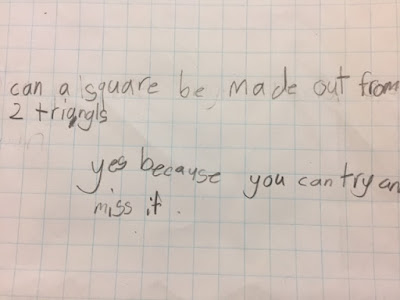 can a square be made out from
2 triangls
yes because you can try an
miss it.